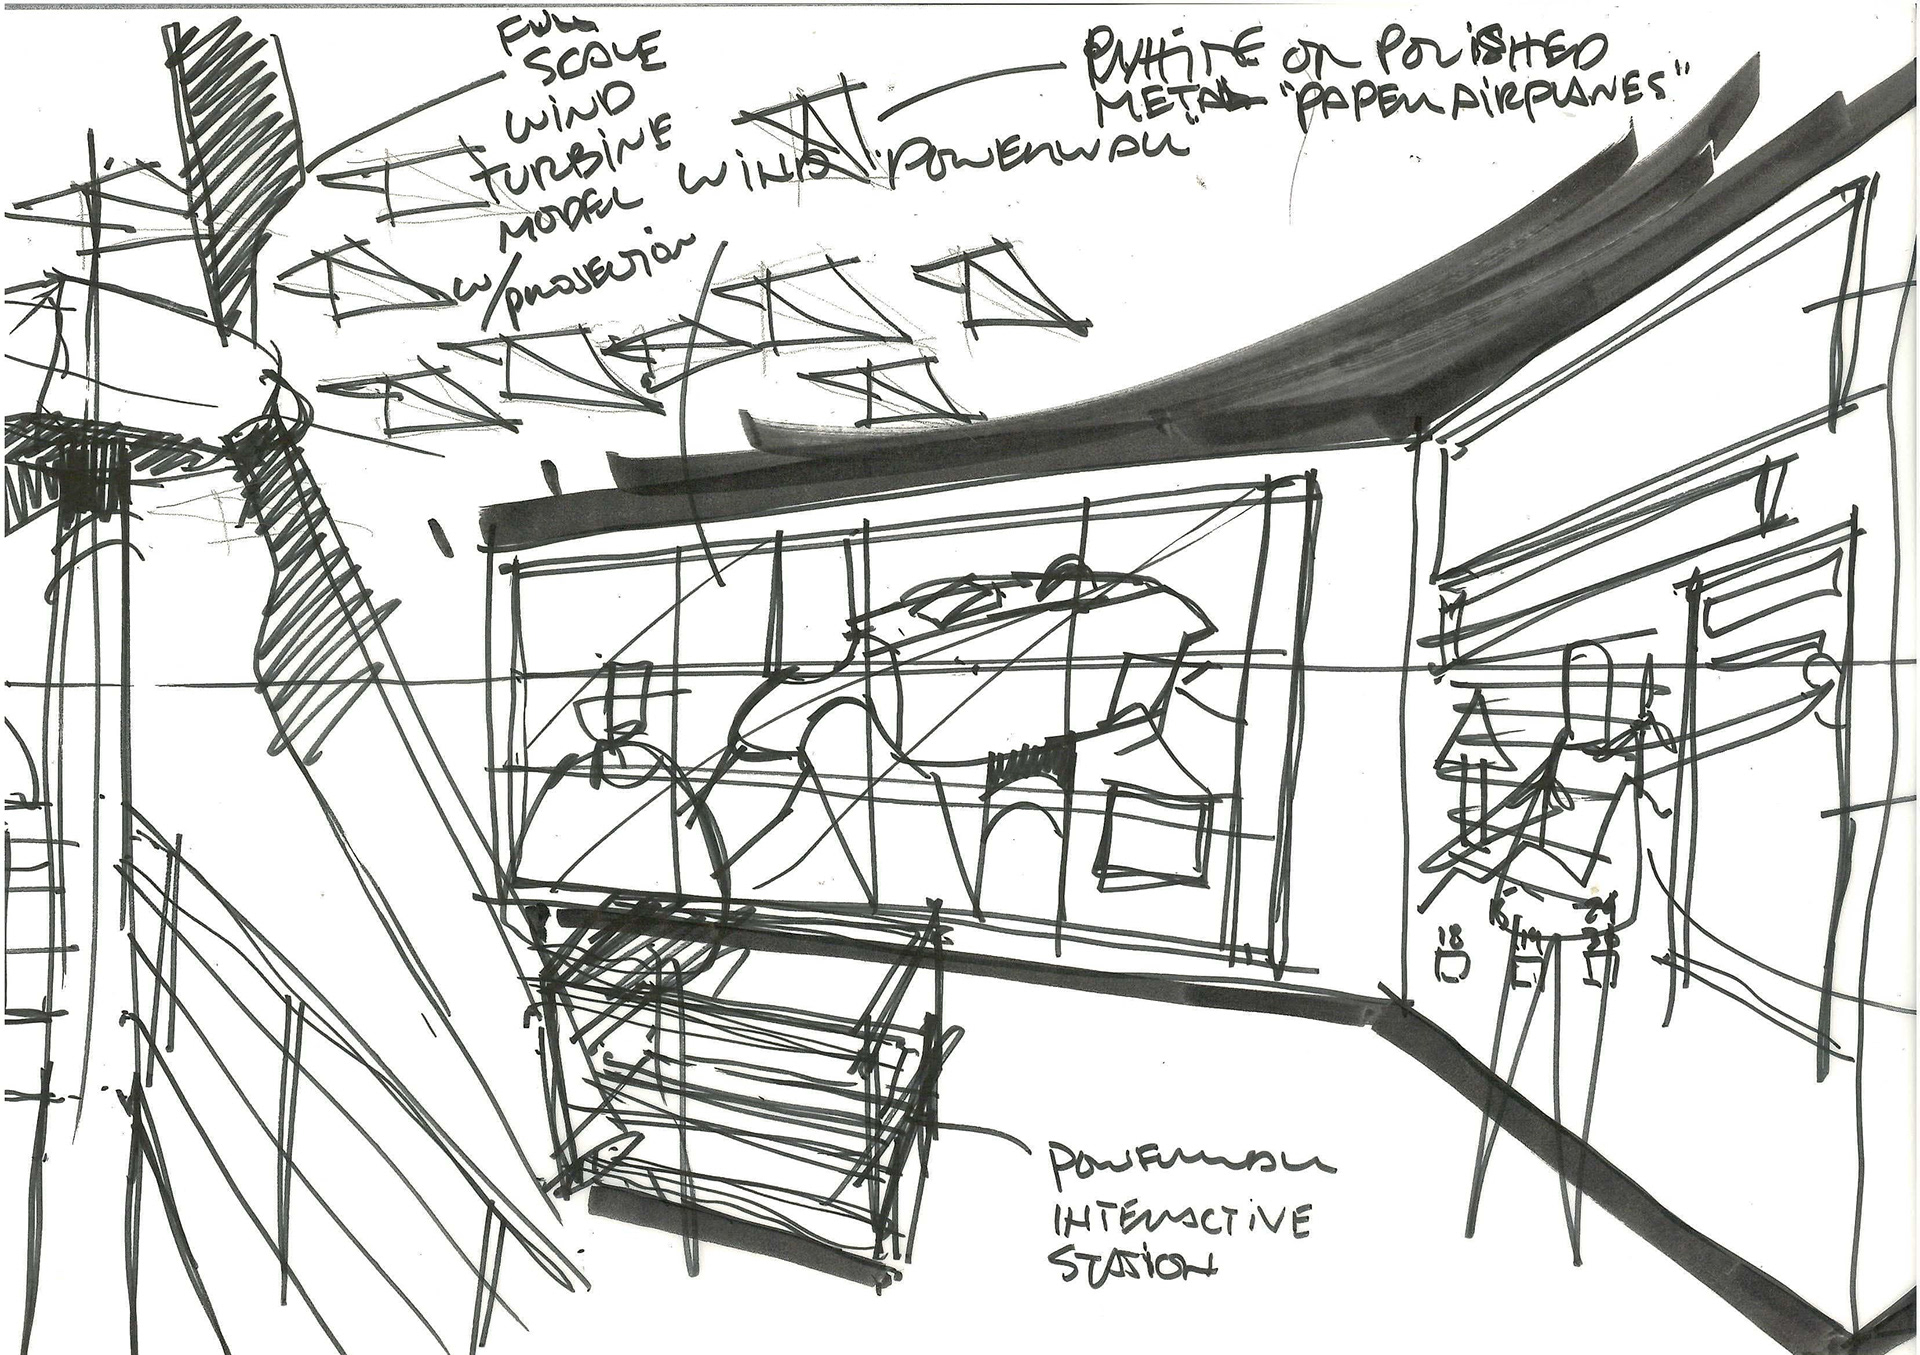 FULL
SCALE
WIND
TURBINE
MODEL
w/ PROJECTION
WHITE OR POLISHED
METAL "PAPER AIRPLANES"
WIND POWERWALL
POWERWALL
INTERACTIVE
STATION
18
19